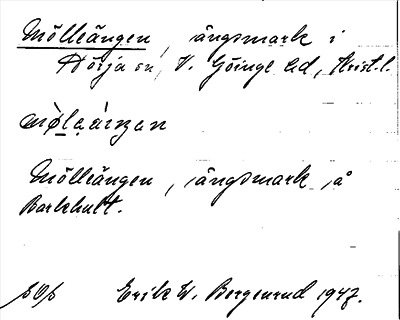 Mölleängen, ängsmark i
Hörja sn, V. Göinge hd, Krist. l.
Mölleängen, ängsmark på
Barkhult.
Erik W. Bergenrud 1947.